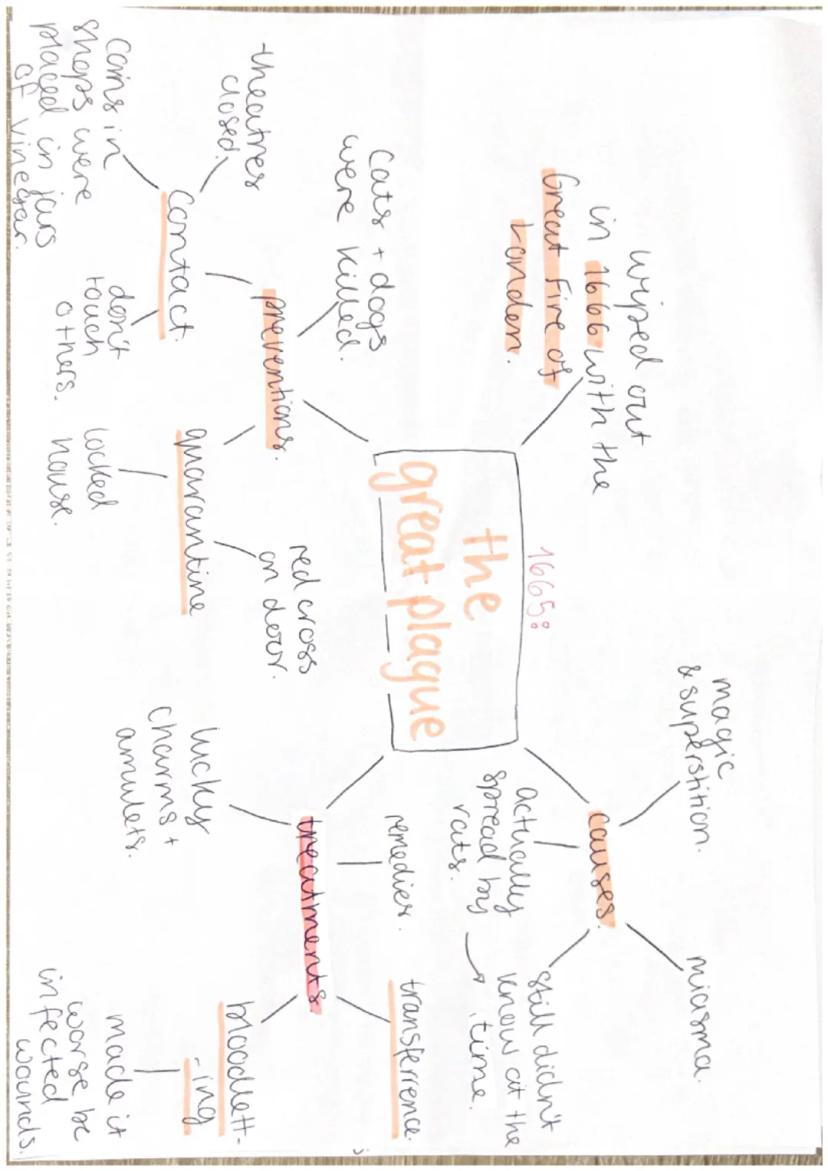 1665:
the
great plague
wiped out
in 1666 with the
Great Fire of
London.
causes.
magic
& superstition.
miasma.
actually
spread by
rats.
still didn't
know at the
time.
preventions.
Cats + dogs
were killed.
contact.
-theatres
closed.
Coins in
shops were
placed in jars
of vinegar.
don't
touch
others.
quarantine
locked
house.
red cross
on door.
treatments
remedies.
transferrence.
lucky
charms +
amulets.
bloodlett-
-ing
made it
worse bc
infected
wounds.